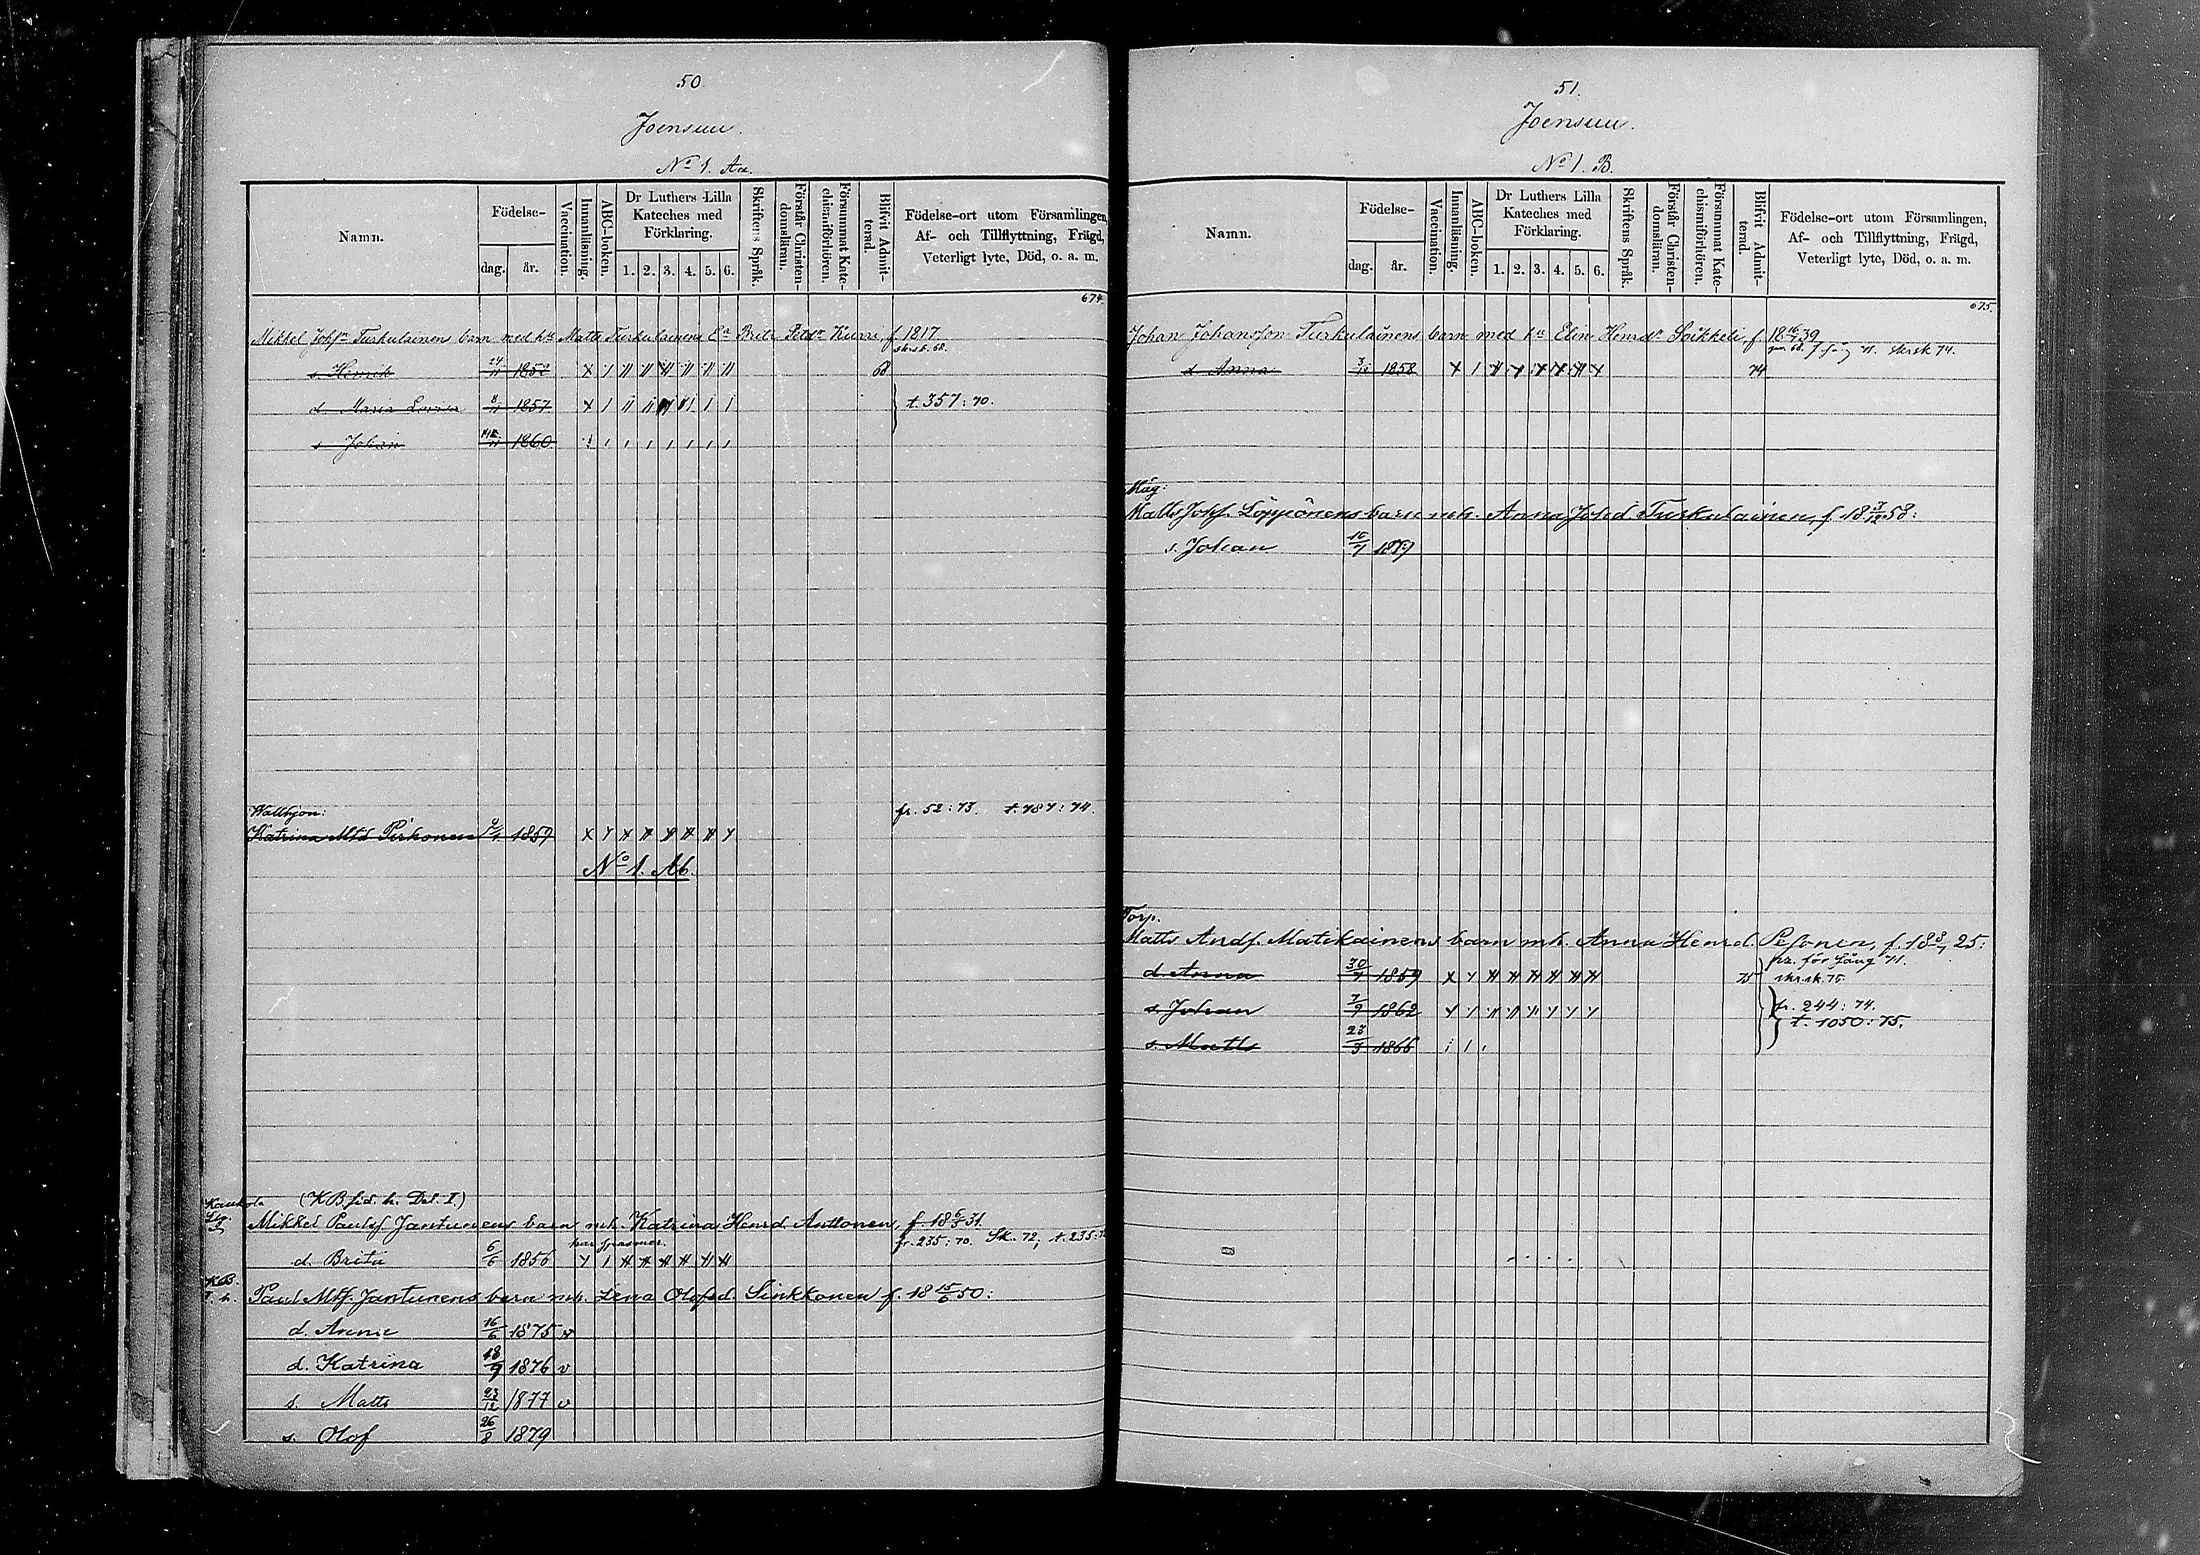 50.
Joensuu.
No 1. Aa.
Namn.
Födelse-
dag. år.
Vaccination.
Innanläsning.
ABC-boken.
Dr Luthers Lilla
Kateches med
Förklaring.
1. 2. 3. 4. 5. 6.
Skriftens Språk.
Förstår Christen-
domsläran.
Försummat Kate-
chismiförhören.
Blifvit Admit-
terad.
Födelse-ort utom Församlingen,
Af- och Tillflyttning, Frägd,
Veterligt lyte, Död, o. a. m.
674.
Mikkel Johsn Turkulainen barn med hu Matts Turkulainens Ea Brita Petdr Kurre, f 1817
s. Henrik 24/11 1852 68
d. Maria Lovisa 8/11 1857 t. 357:70.
s. Johan 1860
Wallhjon: fr. 52:73. t. 787:74.
Katrina Mtsd Pirhonen 1859
No 1. Ab.
Kaukola (KB sid. h. Del. I)
Mikkel Paulsf Jantunens barn mh. Katrina Henrd. Anttonen, f. 18 6/3 31.
fr. 235:70. Sk. 72, t. 235:
d. Brita 6/6 1856
KB.
Paul Mksf. Jantunens barn mh. Lena Olofsd. Sinkkonen f. 18 15/6 50:
d. Annie 16/6 1875 v
d. Katrina 18/9 1876 v
s. Matts 23/12 1877 v
s. Olof 26/8 1879
51.
Joensuu.
No 1. B.
Namn.
Födelse-
dag. år.
Vaccination.
Innanläsning.
ABC-boken.
Dr Luthers Lilla
Kateches med
Förklaring.
1. 2. 3. 4. 5. 6.
Skriftens Språk.
Förstår Christen-
domsläran.
Försummat Kate-
chismiförhören.
Blifvit Admit-
terad.
Födelse-ort utom Församlingen,
Af- och Tillflyttning, Frägd,
Veterligt lyte, Död, o. a. m.
675.
Johan Johansson Turkulainens barn med hu Elin Henrdr Soikkeli, f. 18 39
d. Anna 3/12 1858 74 skrsk 74.
Måg:
Matts Johsf. Löppönens barn mh. Anna Johsd. Turkulainen, f. 18 3/12 58:
s. Johan 10/7 1879
Torp.
Matts Andsf. Matikainens barn mh. Anna Henrd. Pesonen, f. 18 8/7 25:
fr. för gång 71.
d. Anna 30/7 1859 75 skrsk. 75.
s. Johan 7/9 1862 fr. 244:74.
t. 1050:75.
s. Matts 23/3 1866